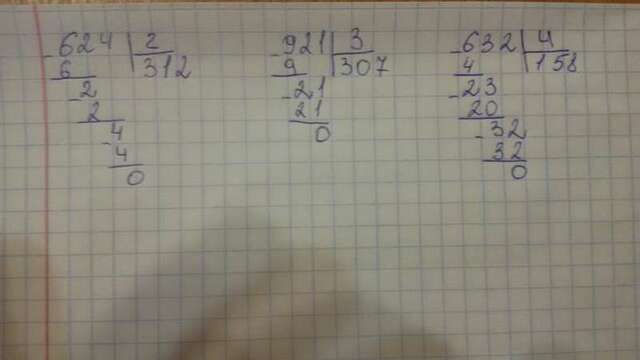 -624 | 2
6 | 312
-2
2
-4
4
0
-921 | 3
9 | 307
-21
21
0
-632 | 4
4 | 158
-23
20
-32
32
0